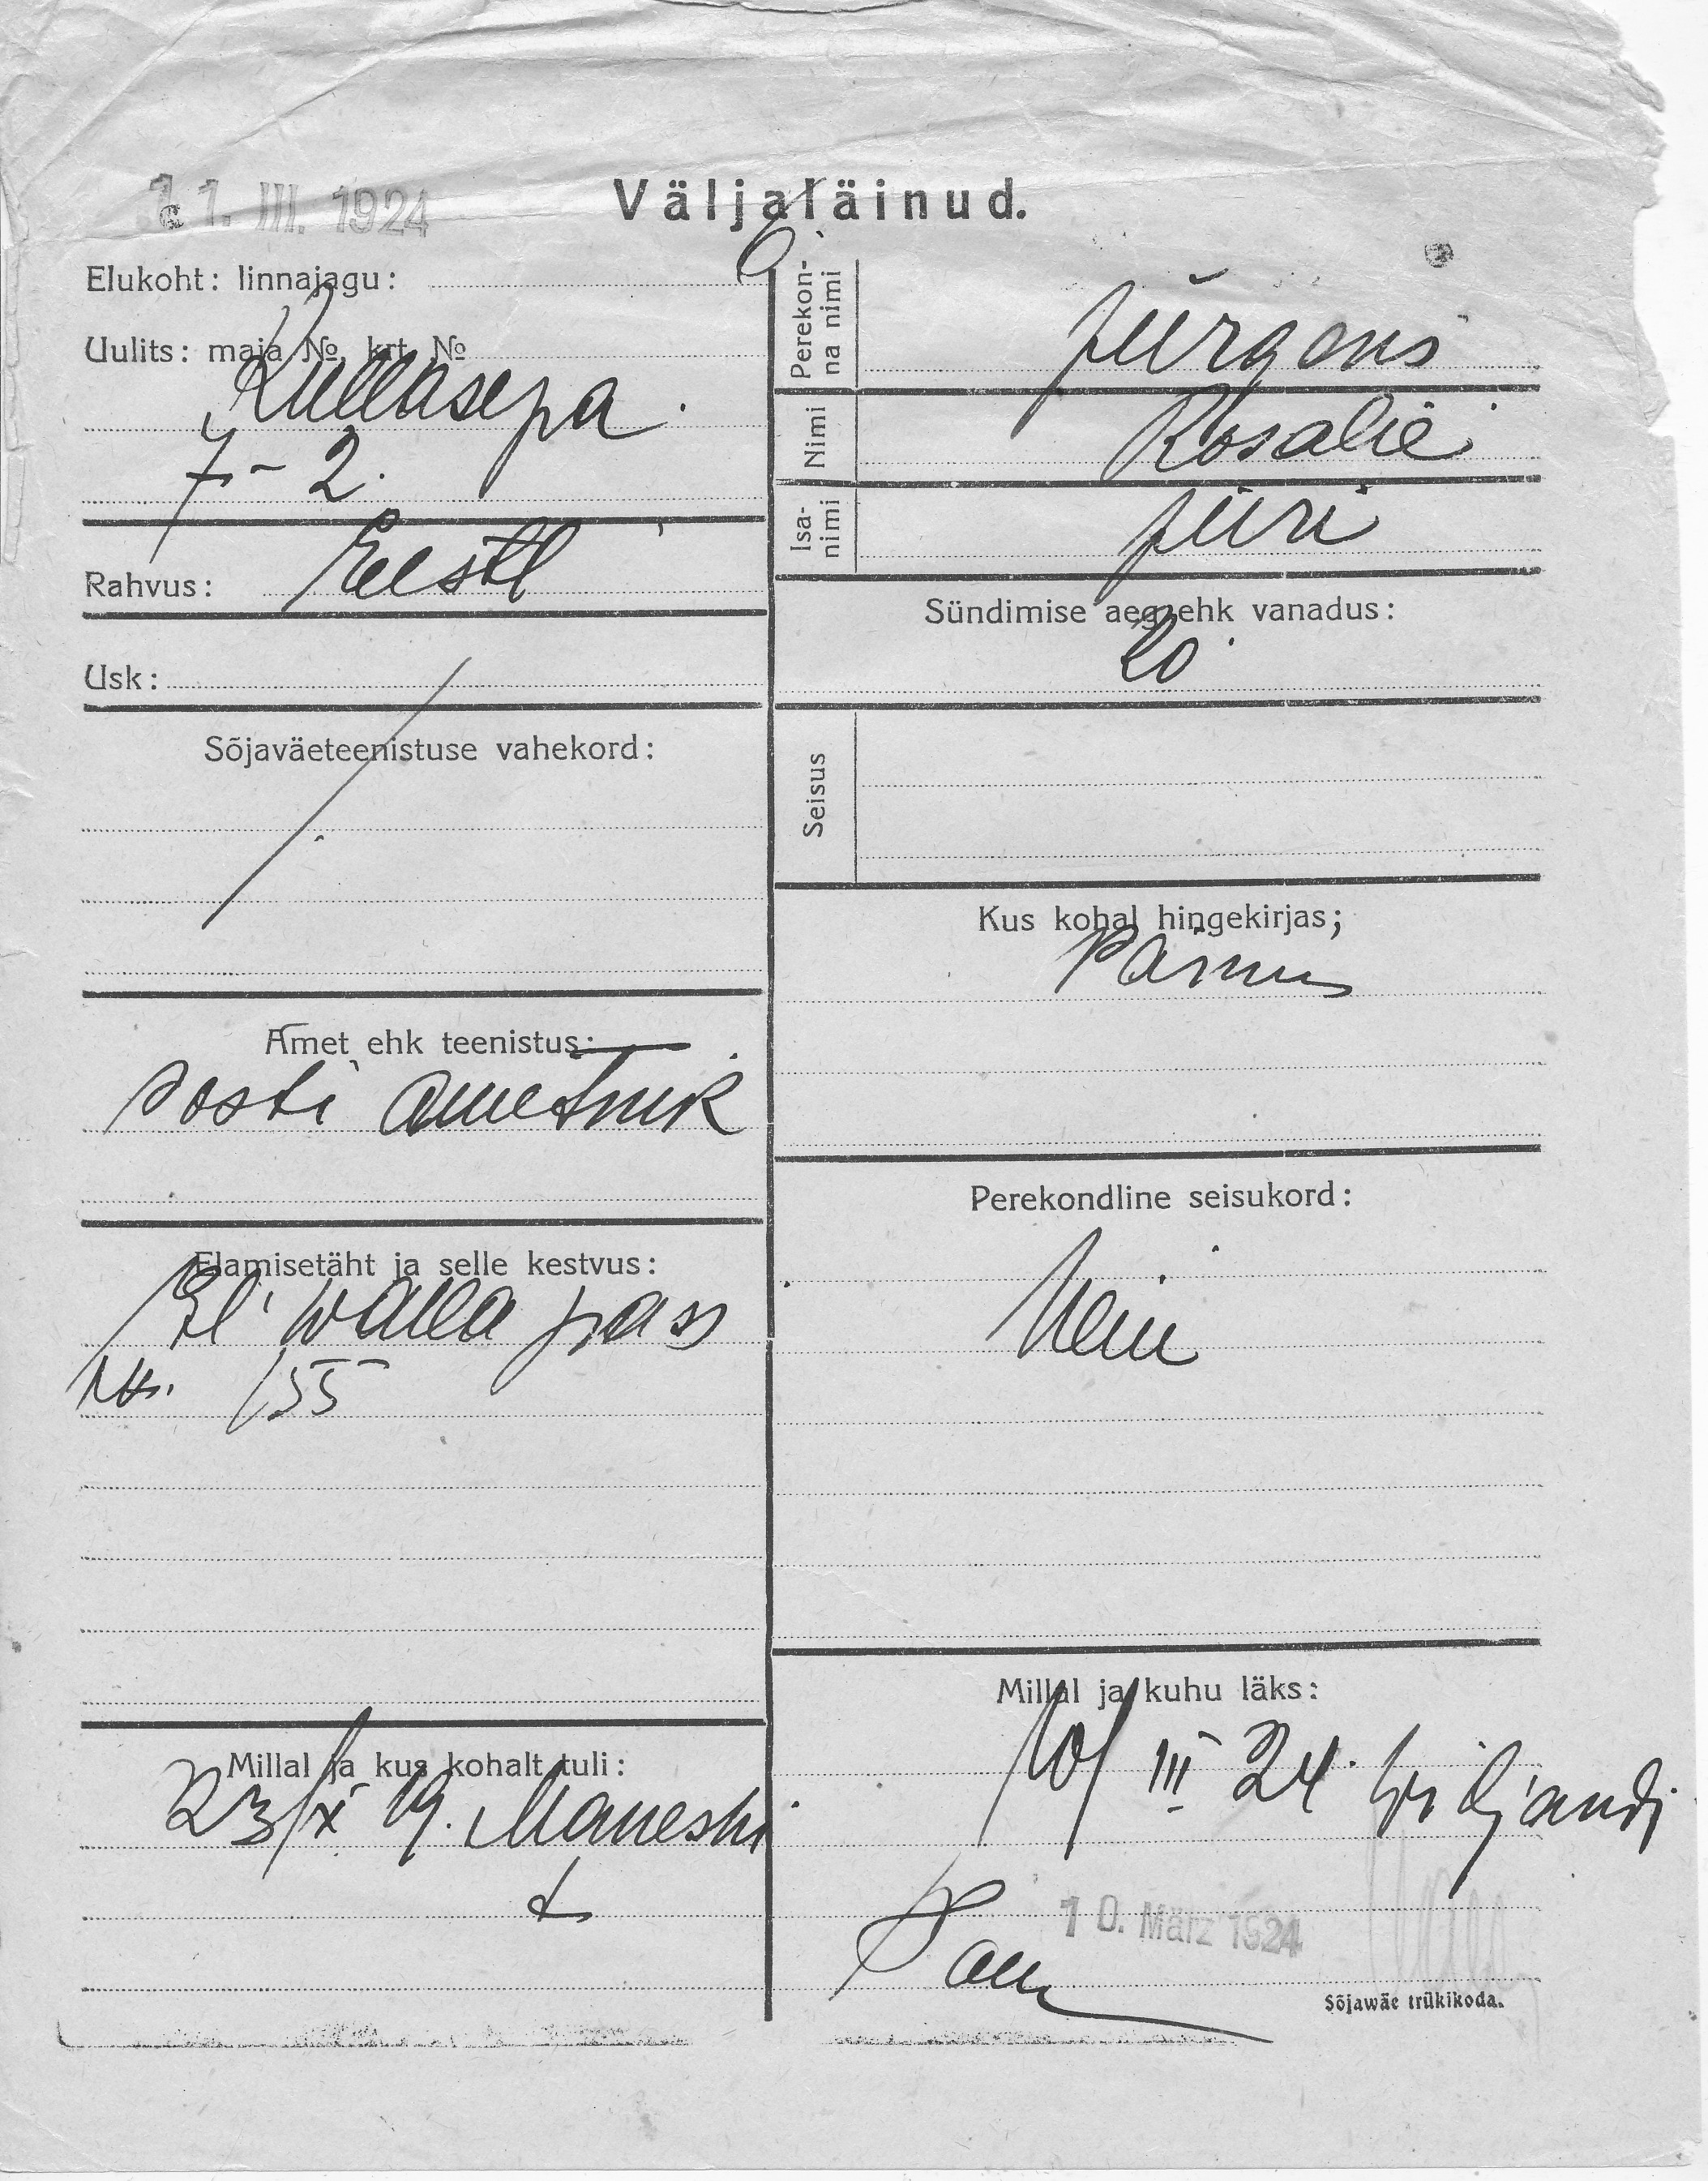 11. III. 1924
Väljaläinud.
Elukoht: linnajagu:
Uulits: maja № krt. №
Kullasepa
7 - 2.
Rahvus: Eesti
Usk:
Sõjaväeteenistuse vahekord:
Amet ehk teenistus:
Posti ametnik
Elamisetäht ja selle kestvus:
walla pass
155
Millal ja kus kohalt tuli:
23/X 19.
Perekon-
na nimi
Jürgens
Nimi
Rosalie
Isa-
nimi
Jüri
Sündimise aeg ehk vanadus:
20
Seisus
Kus kohal hingekirjas;
Pärnu
Perekondline seisukord:
Millal ja kuhu läks:
10/ III 24. Wiljandi
10. März 1924
Sõjawäe trükikoda.